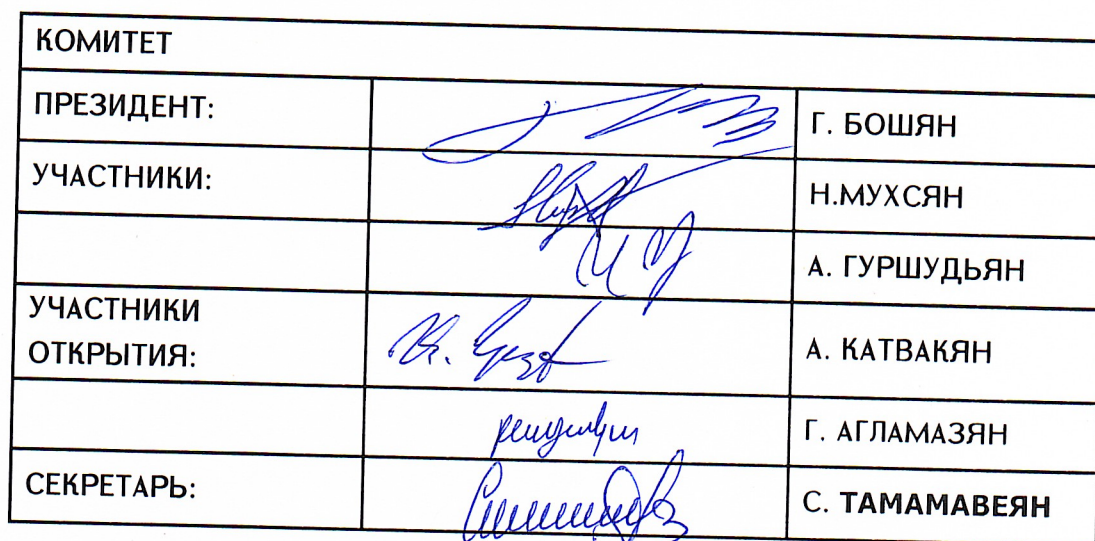 КОМИТЕТ
ПРЕЗИДЕНТ: Г. БОШЯН
УЧАСТНИКИ: Н.МУХСЯН
А. ГУРШУДЬЯН
УЧАСТНИКИ
ОТКРЫТИЯ: А. КАТВАКЯН
Г. АГЛАМАЗЯН
СЕКРЕТАРЬ: С. ТАМАМАВЕЯН